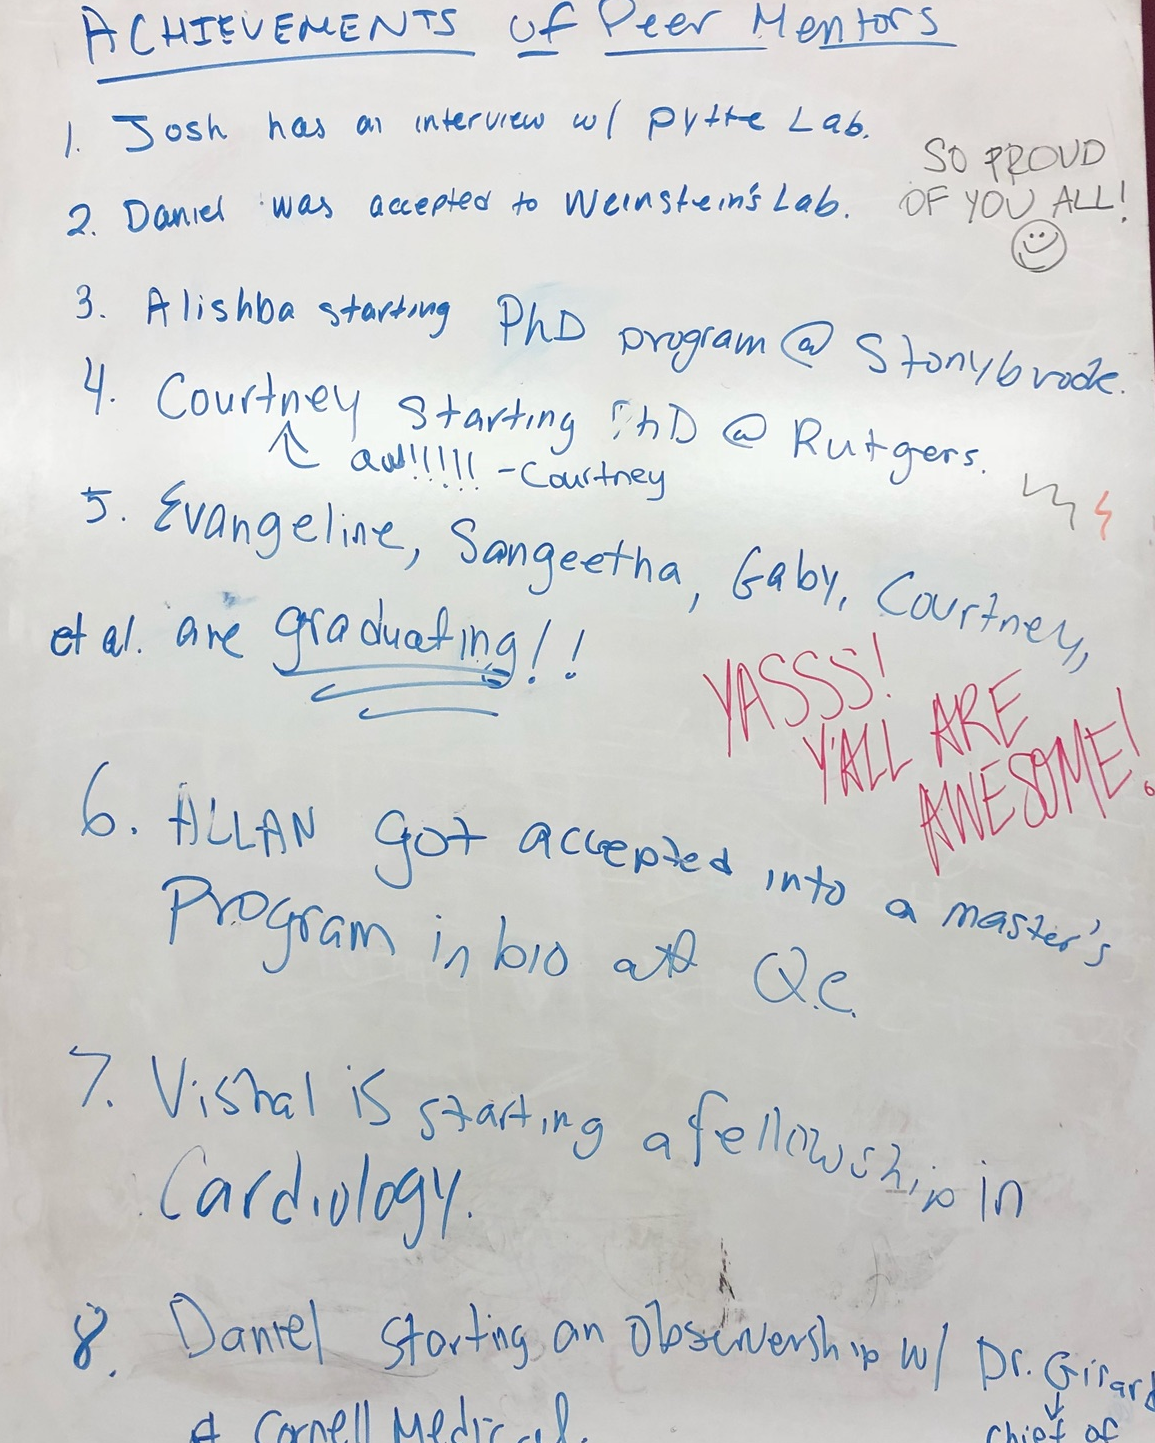 ACHIEVEMENTS of Peer Mentors
1. Josh has an interview w/ Pytte Lab.
SO PROUD
OF YOU ALL!
2. Daniel was accepted to Weinstein's Lab.
3. Alishba starting PhD program @ Stonybrook.
4. Courtney starting PhD @ Rutgers.
aw!!!!!! -Courtney
5. Evangeline, Sangeetha, Gaby, Courtney,
et al. are graduating!!
YASSS!
Y'ALL ARE
AWESOME!
6. ALLAN got accepted into a master's
Program in bio at Q.C.
7. Vishal is starting a fellowship in
Cardiology.
8. Daniel starting an observership w/ Dr. Girard
Cornell Medical.
chief of